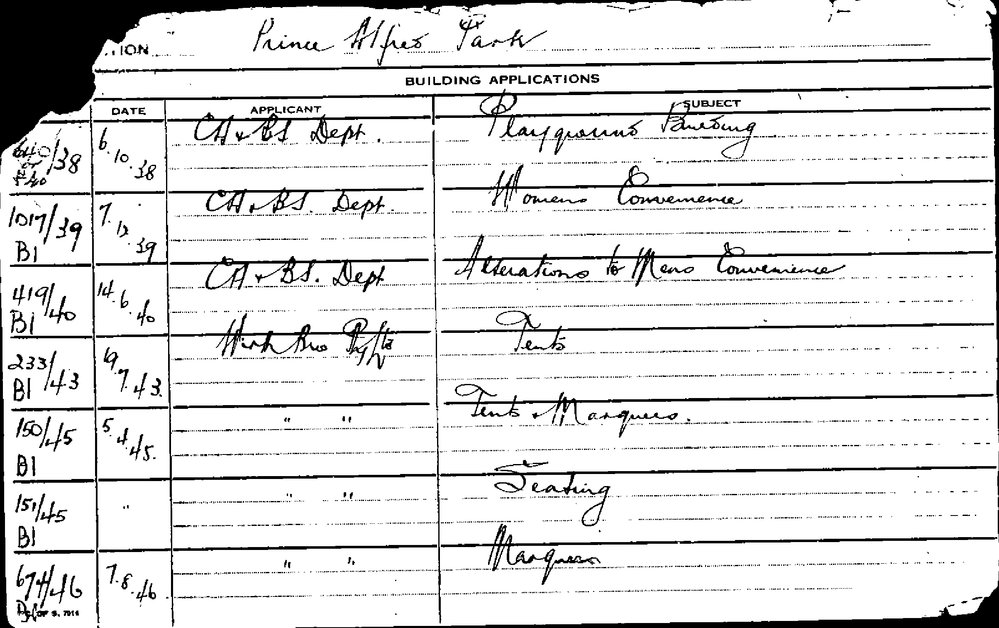 ION Prince Alfred Park
BUILDING APPLICATIONS
DATE APPLICANT SUBJECT
/38 6.10.38 CA & BS Dept. Playground Building
1017/39 7.12.39 CA & BS. Dept. Womens Convenience
B1
419/40 14.6.40 CA & BS. Dept Alterations to Mens Convenience
B1
233/43 19.7.43. Wirth Bros Pty/Ltd Tents
B1
150/45 5.4.45. " " Tents & Marquees.
B1
151/45 " " " Seating
B1
674/46 7.8.46 " " Marquees